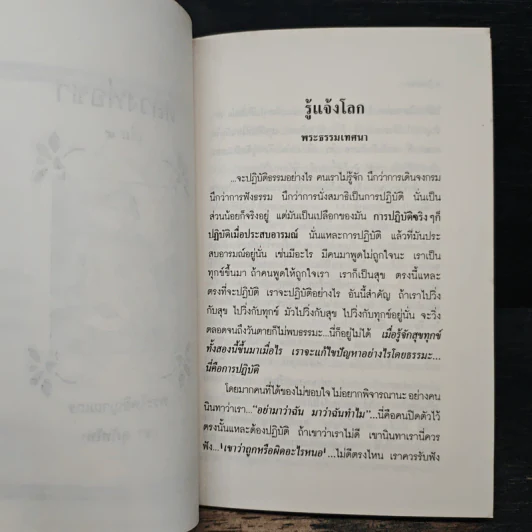 รู้แจ้งโลก
พระธรรมเทศนา
...จะปฏิบัติธรรมอย่างไร คนเราไม่รู้จัก นึกว่าการเดินจงกรม
นึกว่าการฟังธรรม นึกว่าการนั่งสมาธิเป็นการปฏิบัติ นั่นเป็น
ส่วนน้อยก็จริงอยู่ แต่มันเป็นเปลือกของมัน การปฏิบัติจริงๆก็
ปฏิบัติเมื่อประสบอารมณ์ นั่นแหละการปฏิบัติ แล้วที่มันประ
สบอารมณ์อยู่นั่น เช่นมีอะไร มีคนมาพูดไม่ถูกใจนะ เราเป็น
ทุกข์ขึ้นมา ถ้าคนพูดให้ถูกใจเรา เราก็เป็นสุข ตรงนี้แหละ
ตรงที่จะปฏิบัติ เราจะปฏิบัติอย่างไร อันนี้สำคัญ ถ้าเราไปวิ่ง
กับสุข ไปวิ่งกับทุกข์ มัวไปวิ่งกับสุข ไปวิ่งกับทุกข์อยู่นั่น จะวิ่ง
ตลอดจนถึงวันตายก็ไม่พบธรรมะ...นี่ก็อยู่ไม่ได้ เมื่อรู้จักสุขทุกข์
ทั้งสองนี้ขึ้นมาเมื่อไร เราจะแก้ไขปัญหาอย่างไรโดยธรรมะ...
นี่คือการปฏิบัติ
โดยมากคนที่ได้ของไม่ชอบใจ ไม่อยากพิจารณานะ อย่างคน
นินทาว่าเรา..."อย่ามาว่าฉัน มาว่าฉันทำไม"...นี่คือคนปิดตัวไว้
ตรงนั้นแหละต้องปฏิบัติ ถ้าเขาว่าเราไม่ดี เขานินทาเรานี่ควร
ฟัง...'เขาว่าถูกหรือผิดอะไรหนอ'...ไม่ดีตรงไหน เราควรรับฟัง